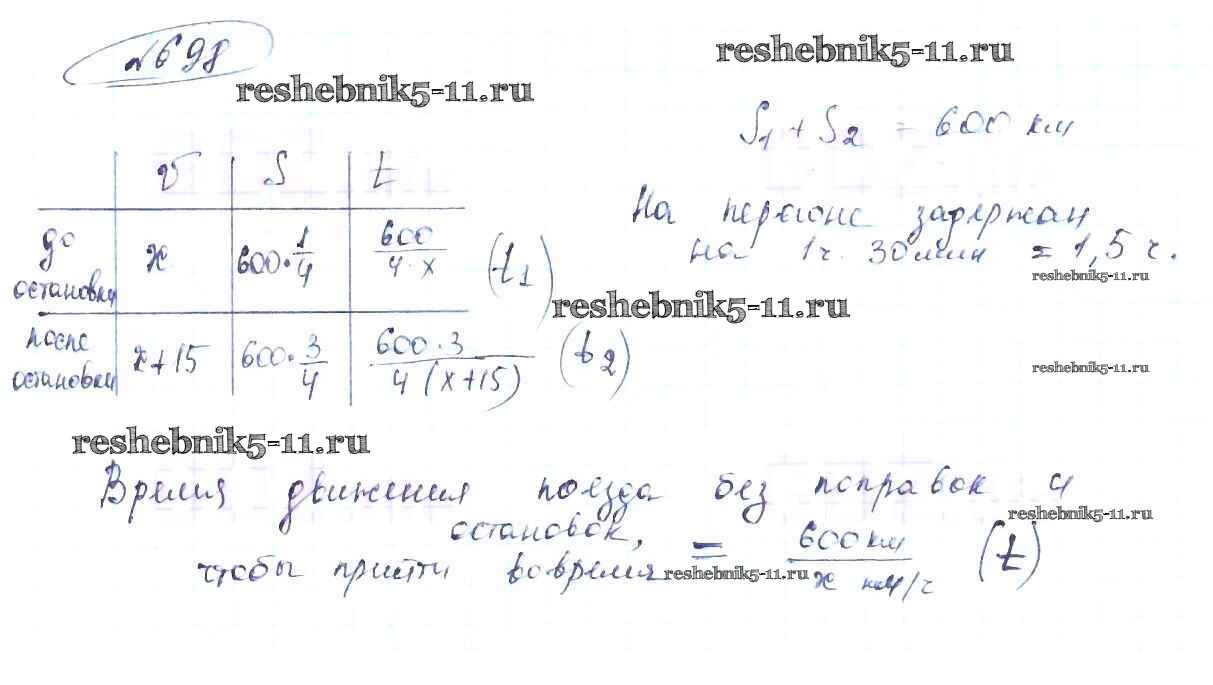 №698
reshebnik5-11.ru
reshebnik5-11.ru
S1 + S2 = 600 км
На перегоне задержан
на 1ч. 30мин = 1,5 ч.
reshebnik5-11.ru
v S t
до остановки x 600·1/4 600/(4·x) (t1)
reshebnik5-11.ru
после остановки x+15 600·3/4 600·3/(4(x+15)) (t2)
reshebnik5-11.ru
reshebnik5-11.ru
Время движения поезда без поправок и
остановок,
reshebnik5-11.ru
чтобы прийти вовремя = 600км/x км/ч (t)
reshebnik5-11.ru